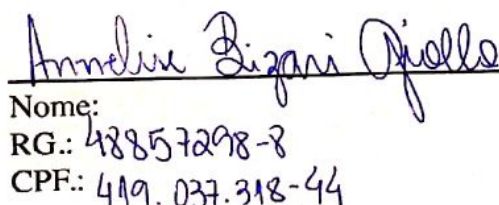 Annelise Bizari
Nome:
RG.: 48857298-8
CPF.: 419.037.318-44